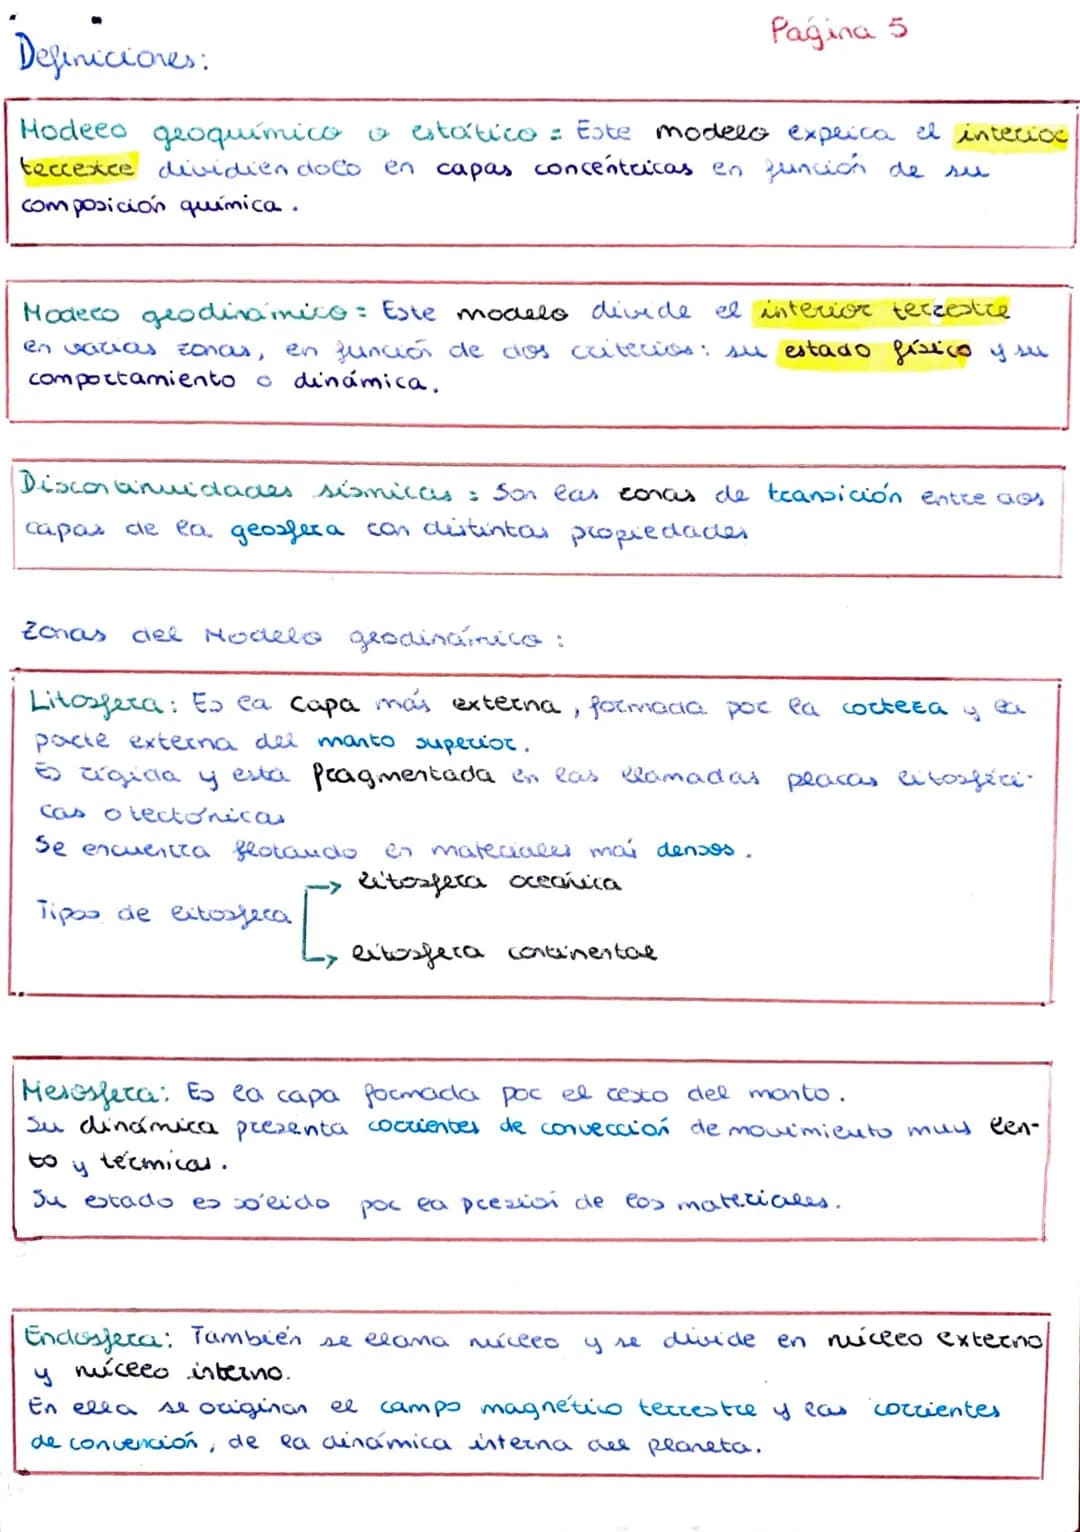 Página 5
Definiciones:
Modelo geoquímico o estático = Este modelo explica el interior
terrestre dividiendolo en capas concéntricas en función de su
composición química.
Modelo geodinámico = Este modelo divide el interior terrestre
en varias zonas, en función de dos criterios: su estado físico y su
comportamiento o dinámica.
Discontinuidades sísmicas : Son las zonas de transición entre dos
capas de la geosfera con distintas propiedades
Zonas del Modelo geodinámico :
Litosfera: Es la capa más externa, formada por la corteza y la
parte externa del manto superior.
Es rígida y está fragmentada en las llamadas placas litosféri-
cas o tectónicas
Se encuentra flotando en materiales más densos.
→ litosfera oceánica
Tipos de litosfera
→ litosfera continental
Mesosfera: Es la capa formada por el resto del manto.
Su dinámica presenta corrientes de convección de movimiento muy len-
to y térmicas.
Su estado es sólido por la presión de los materiales.
Endosfera: También se llama núcleo y se divide en núcleo externo
y núcleo interno.
En ella se originan el campo magnético terrestre y las corrientes
de convención, de la dinámica interna del planeta.